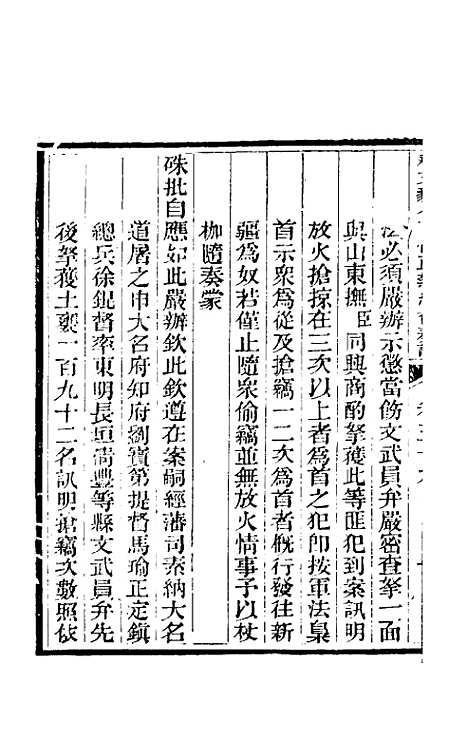 必須嚴辦示懲當飭文武員弁嚴密查拏一面
與山東撫臣同興商酌拏獲此等匪犯到案訊明
放火搶掠在三次以上者爲首之犯卽按軍法梟
首示衆爲從及搶竊一二次爲首者槪行發往新
疆爲奴若僅止隨衆偷竊並無放火情事予以杖
枷隨奏蒙
硃批自應如此嚴辦欽此欽遵在案嗣經藩司素納大名
道屠之申大名府知府劉賓第提督馬瑜正定鎭
總兵徐錕督率東明長垣淸豐等縣文武員弁先
後拏獲土棗一百九十二名訊明搶竊次數照依